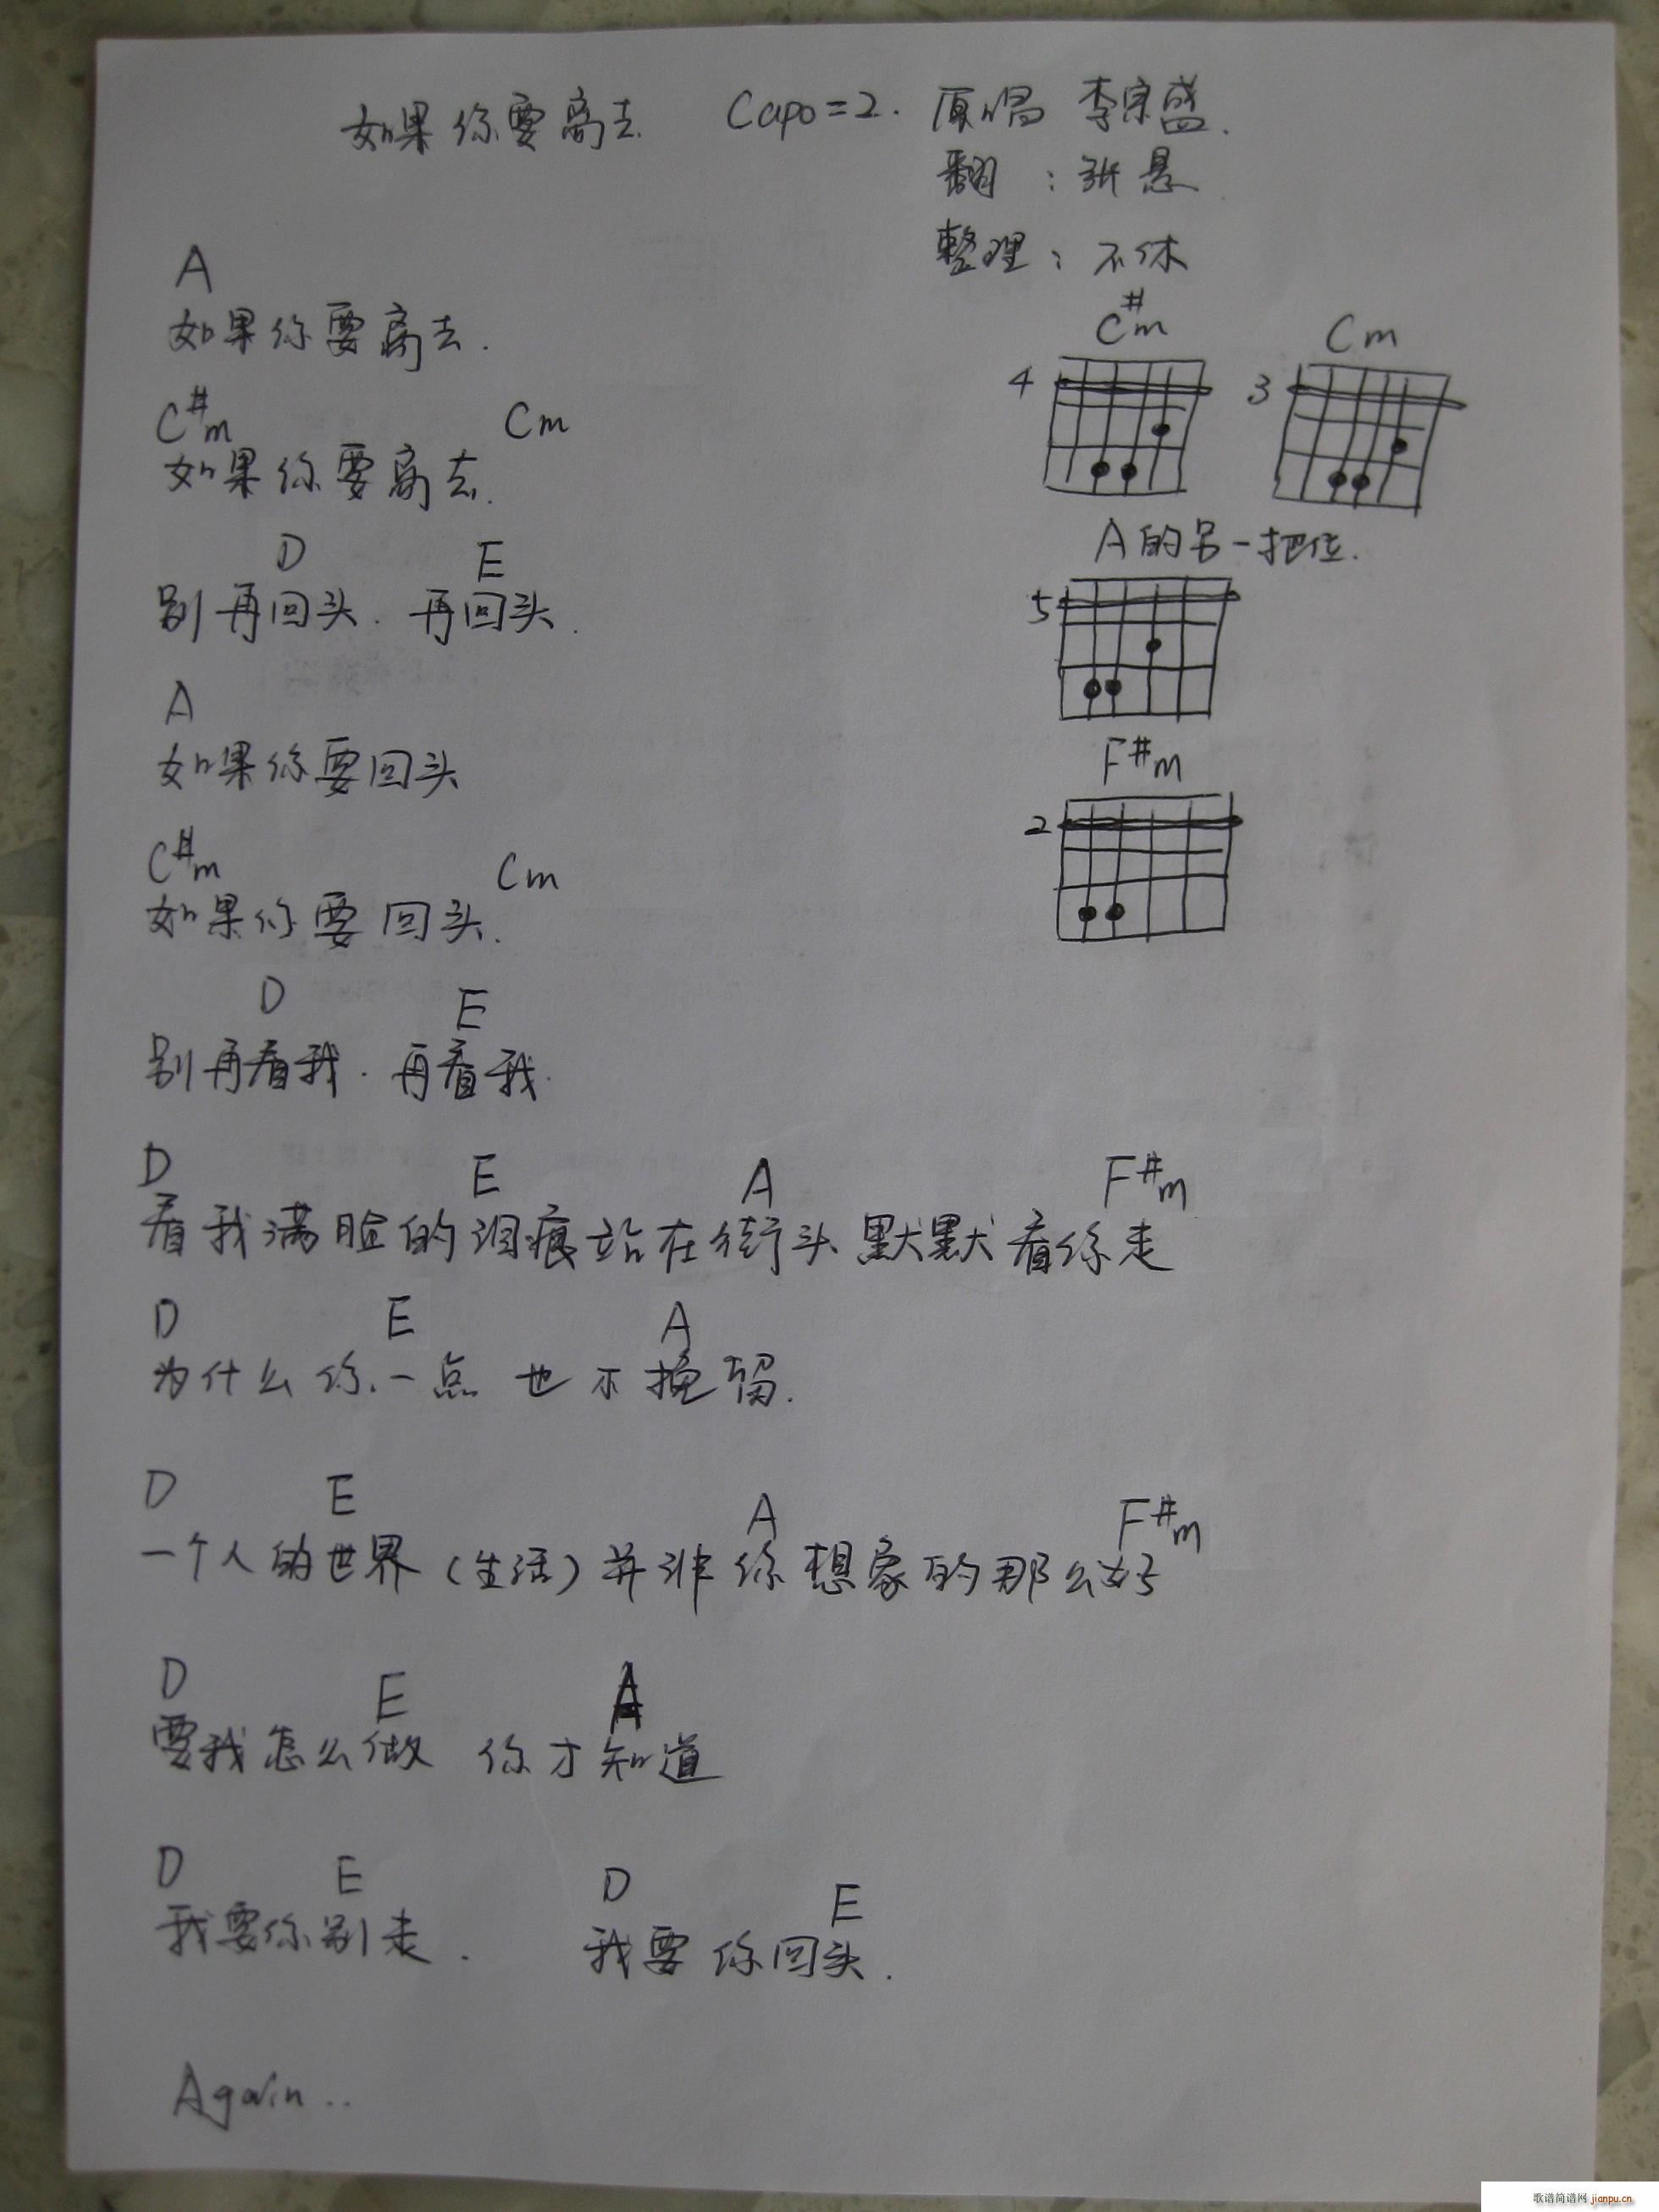 如果你要离去 Capo=2. 原唱 李宗盛.
翻 : 张悬
整理 : 不休
A
如果你要离去.
C#m Cm
如果你要离去.
D E
别再回头. 再回头.
A
如果你要回头
C#m Cm
如果你要回头.
D E
别再看我. 再看我.
D E A F#m
看我满脸的泪痕站在街头默默看你走
D E A
为什么你一点也不挽留.
D E A F#m
一个人的世界(生活)并非你想象的那么好
D E A
要我怎么做 你才知道
D E D E
我要你别走. 我要你回头.
Again..
C#m Cm
4 3
A的另一把位.
5
F#m
2
歌谱简谱网 jianpu.cn